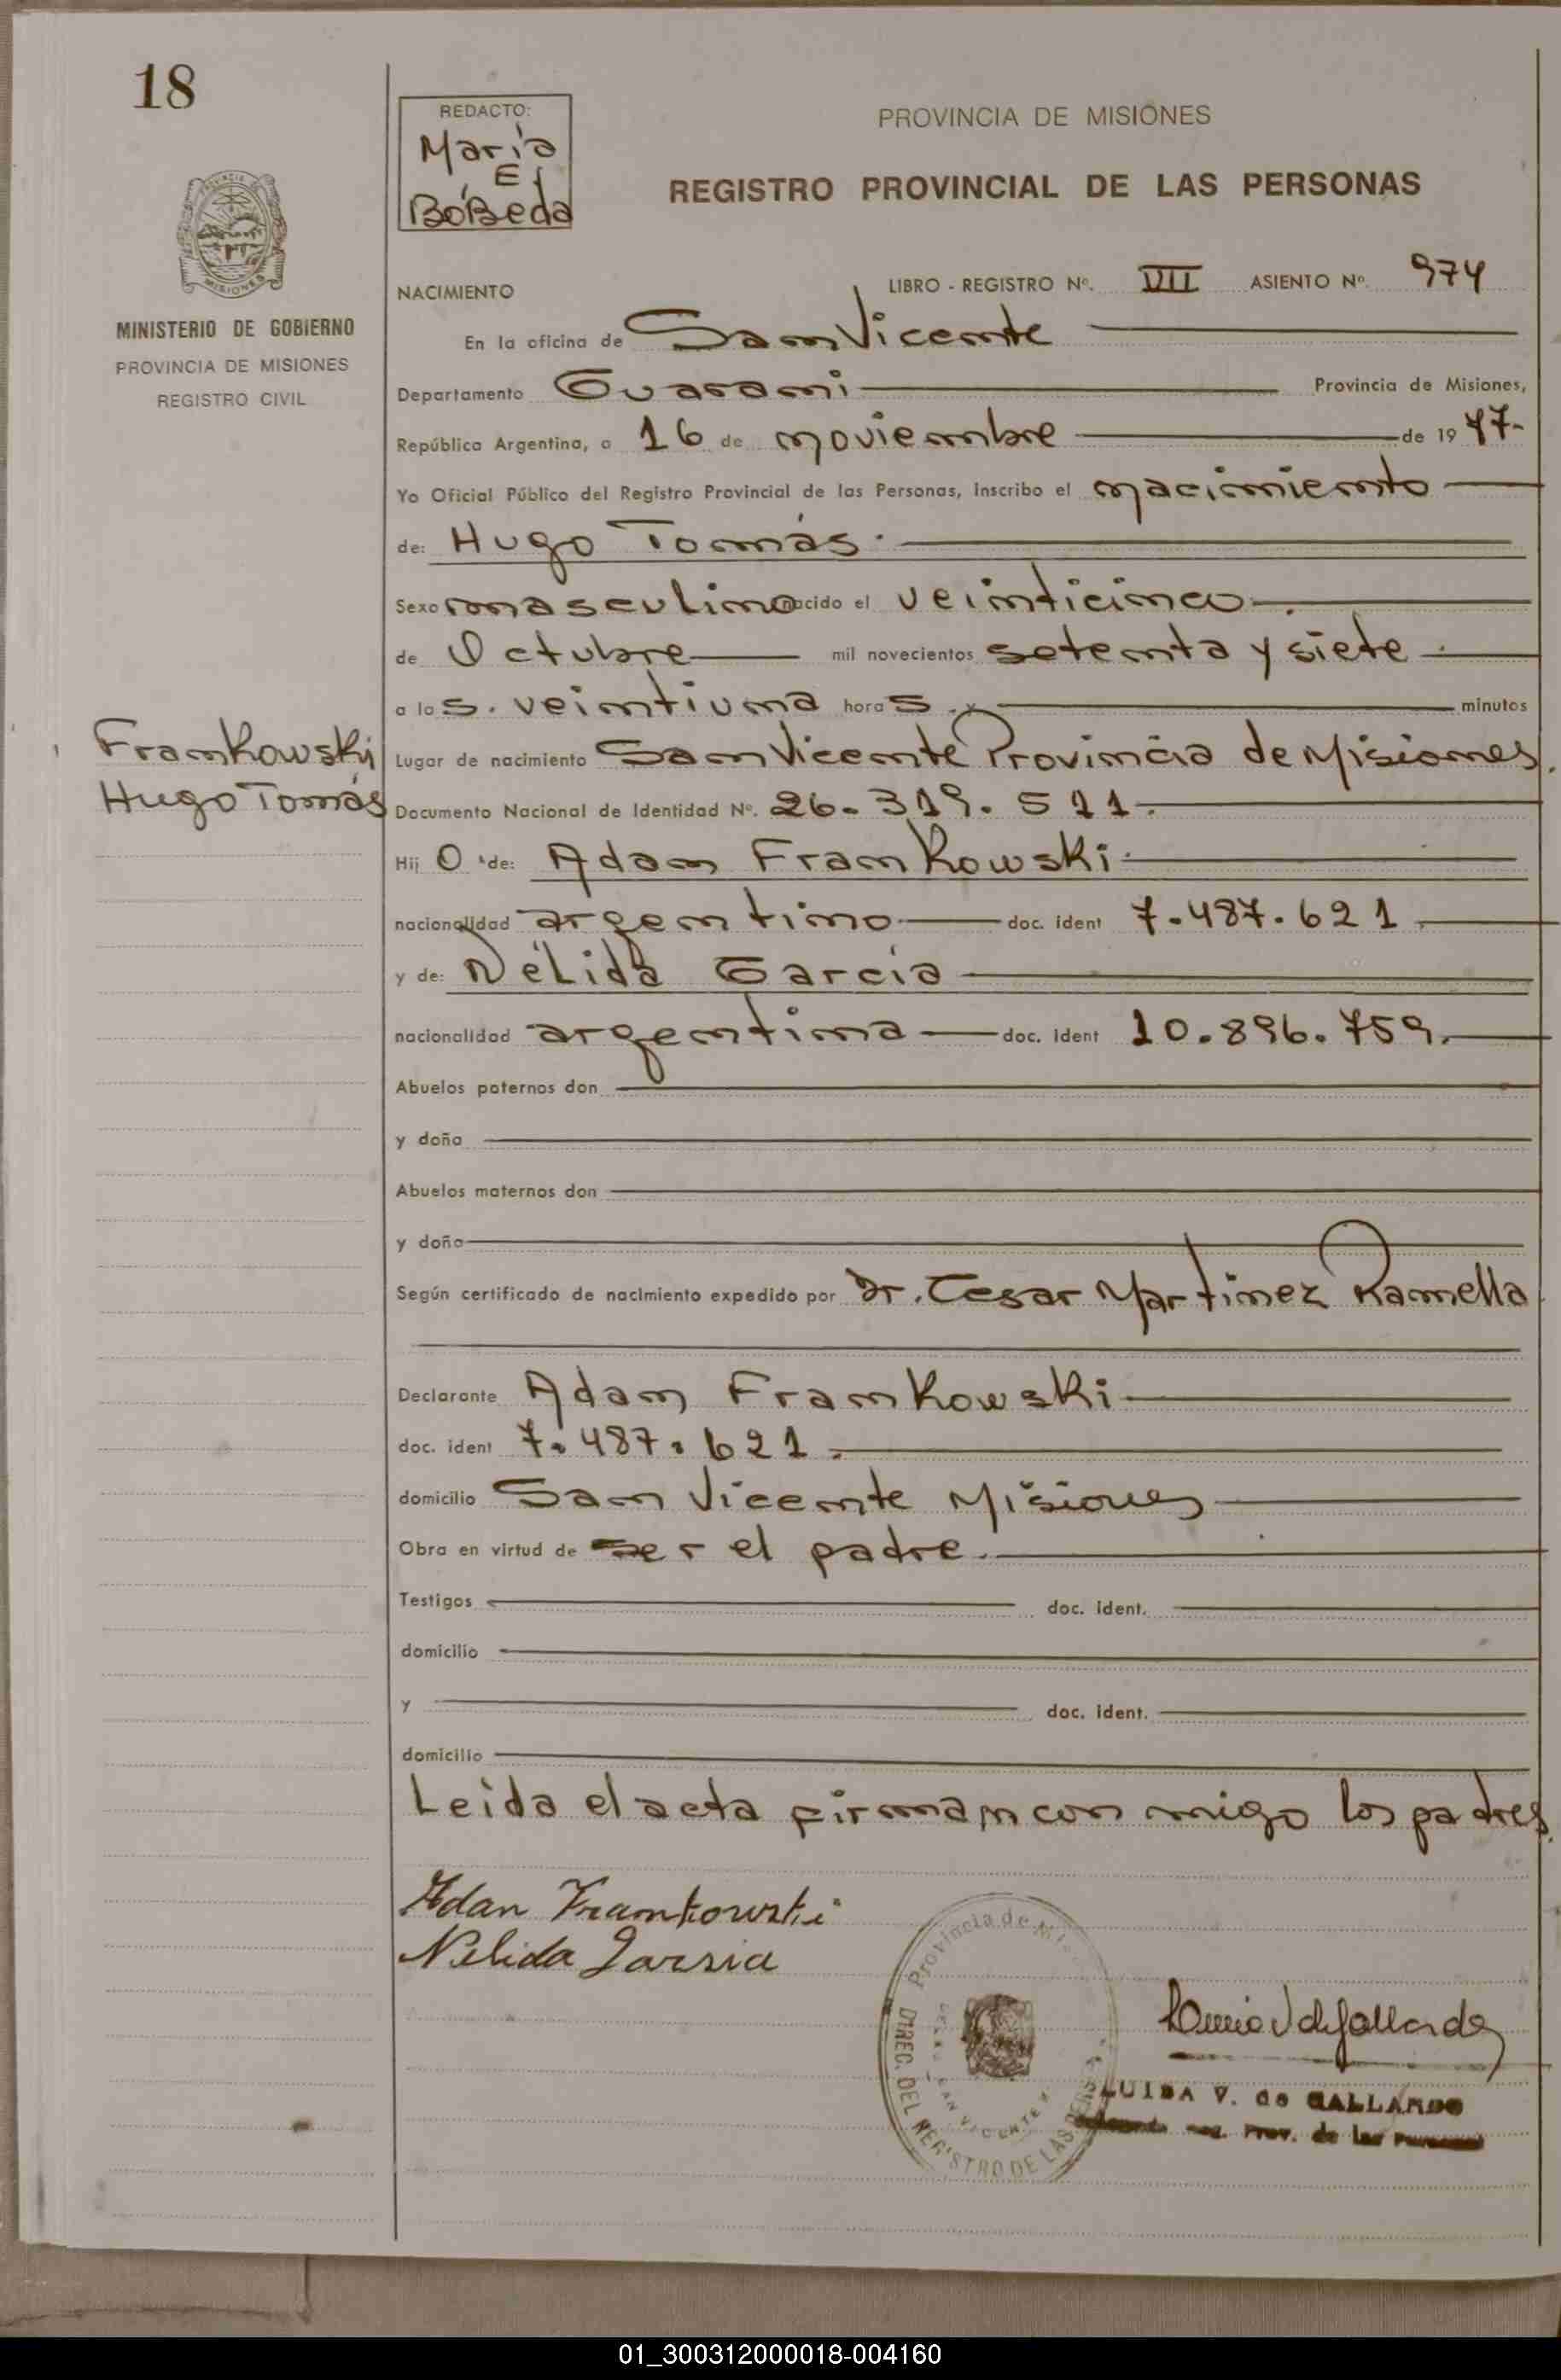 18
MINISTERIO DE GOBIERNO
PROVINCIA DE MISIONES
REGISTRO CIVIL
Frankowski
Hugo Tomás
REDACTO:
María
E
BóBeda
PROVINCIA DE MISIONES
REGISTRO PROVINCIAL DE LAS PERSONAS
NACIMIENTO LIBRO - REGISTRO Nº. VII ASIENTO Nº. 974
En la oficina de San Vicente
Departamento Guarani Provincia de Misiones,
República Argentina, a 16 de noviembre de 1977-
Yo Oficial Público del Registro Provincial de las Personas, inscribo el nacimiento
de: Hugo Tomás.
Sexo masculino nacido el veinticinco
de Octubre mil novecientos setenta y siete
a las. veintiuna horas. y minutos
Lugar de nacimiento San Vicente Provincia de Misiones.
Documento Nacional de Identidad Nº. 26-319.511.
Hijo de: Adam Frankowski
nacionalidad argentino doc. ident 7.487.621
y de: Nélida García
nacionalidad argentina doc. ident 10.896.759.
Abuelos paternos don
y doña
Abuelos maternos don
y doña
Según certificado de nacimiento expedido por Dr. Cesar Martinez Ramella
Declarante Adam Frankowski
doc. ident 7.487.621.
domicilio San Vicente Misiones
Obra en virtud de ser el padre.
Testigos doc. ident.
domicilio
y doc. ident.
domicilio
Leida el acta firman con migo los padres.
Adan Frankowski
Nelida Garsia
Provincia de
DIREC. DEL REGISTRO DE LAS PERS
SAN VICENTE
LUISA V. de GALLARDO
Reg. Prov. de las Personas
01_300312000018-004160